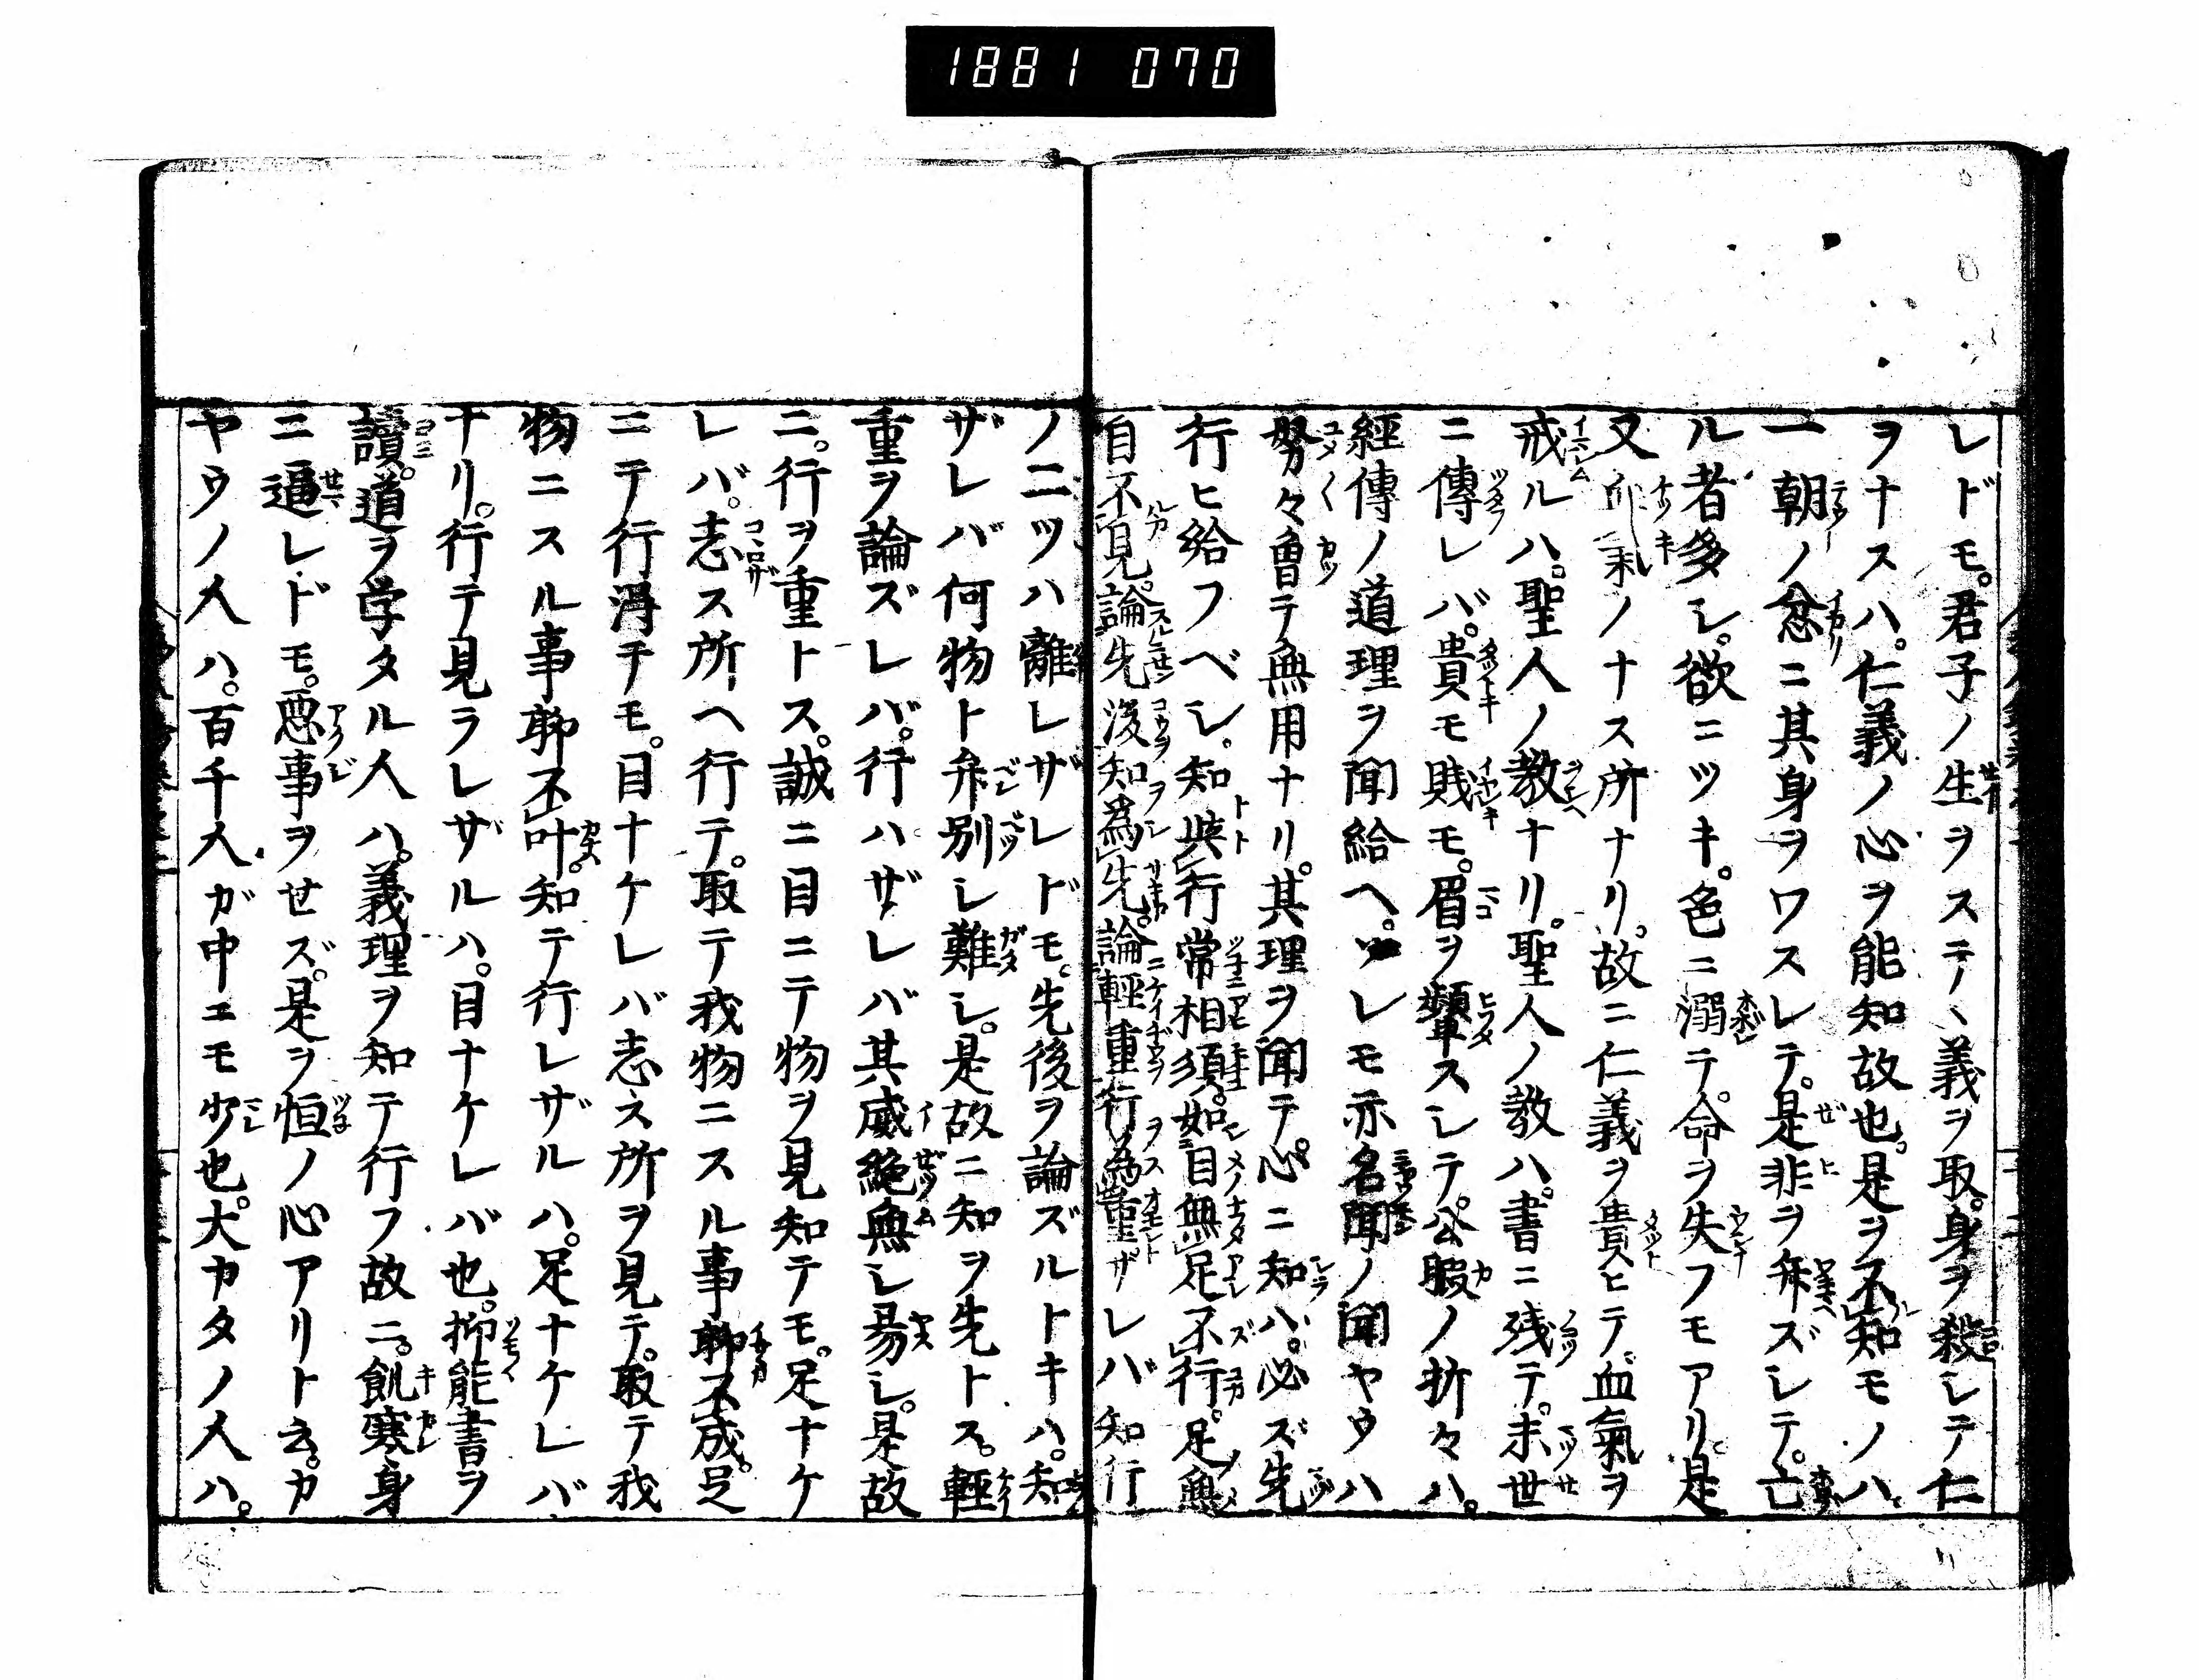 1881 070
レドモ。君子ノ生ヲステヽ義ヲ取。身ヲ殺シテ仁
ヲナスハ。仁義ノ心ヲ能知故也。是ヲ不知モノハ
一朝ノ忿ニ其身ヲワスレテ。是非ヲ弁ズレテ。亡
ル者多シ。欲ニツキ。色ニ溺テ。命ヲ失フモアリ。是
又ノナス所ナリ。故ニ仁義ヲ貴ヒテ。血氣ヲ
戒ルハ。聖人ノ教ナリ。聖人ノ教ハ。書ニ残テ。末世
ニ傳レバ。貴モ賎モ。眉ヲ顰スレテ。公暇ノ折々ハ。
經傳ノ道理ヲ聞給ヘ。レモ亦名聞ノ聞ヤウハ
努々曾テ無用ナリ。其理ヲ聞テ。心ニ知ハ。必ズ先
行ヒ給フベシ。知與行常相須。如目無足不行。足無
目不見。論先後知為先。論輕重行為重ザレバ知行
ノ二ツハ離レザレドモ。先後ヲ論ズルトキハ。知
ザレバ何物ト弁別シ難シ。是故ニ知ヲ先トス。輕
重ヲ論ズレバ。行ハザレバ其威絶無シ易シ。是故
ニ。行ヲ重トス。誠ニ目ニテ物ヲ見知テモ。足ナケ
レバ。志ス所ヘ行テ。取テ我物ニスル事聊不成。足
ニテ行得テモ。目ナケレバ志ス所ヲ見テ。取テ我
物ニスル事聊不叶。知テ行レザルハ。足ナケレバ
ナリ。行テ見ラレザルハ。目ナケレバ也。抑能書ヲ
讀。道ヲ学タル人ハ。義理ヲ知テ行フ故ニ。飢寒身
ニ逼レドモ。悪事ヲせズ。是ヲ恒ノ心アリト云。カ
ヤウノ人ハ。百千人ガ中ニモ少也。大カタノ人ハ。